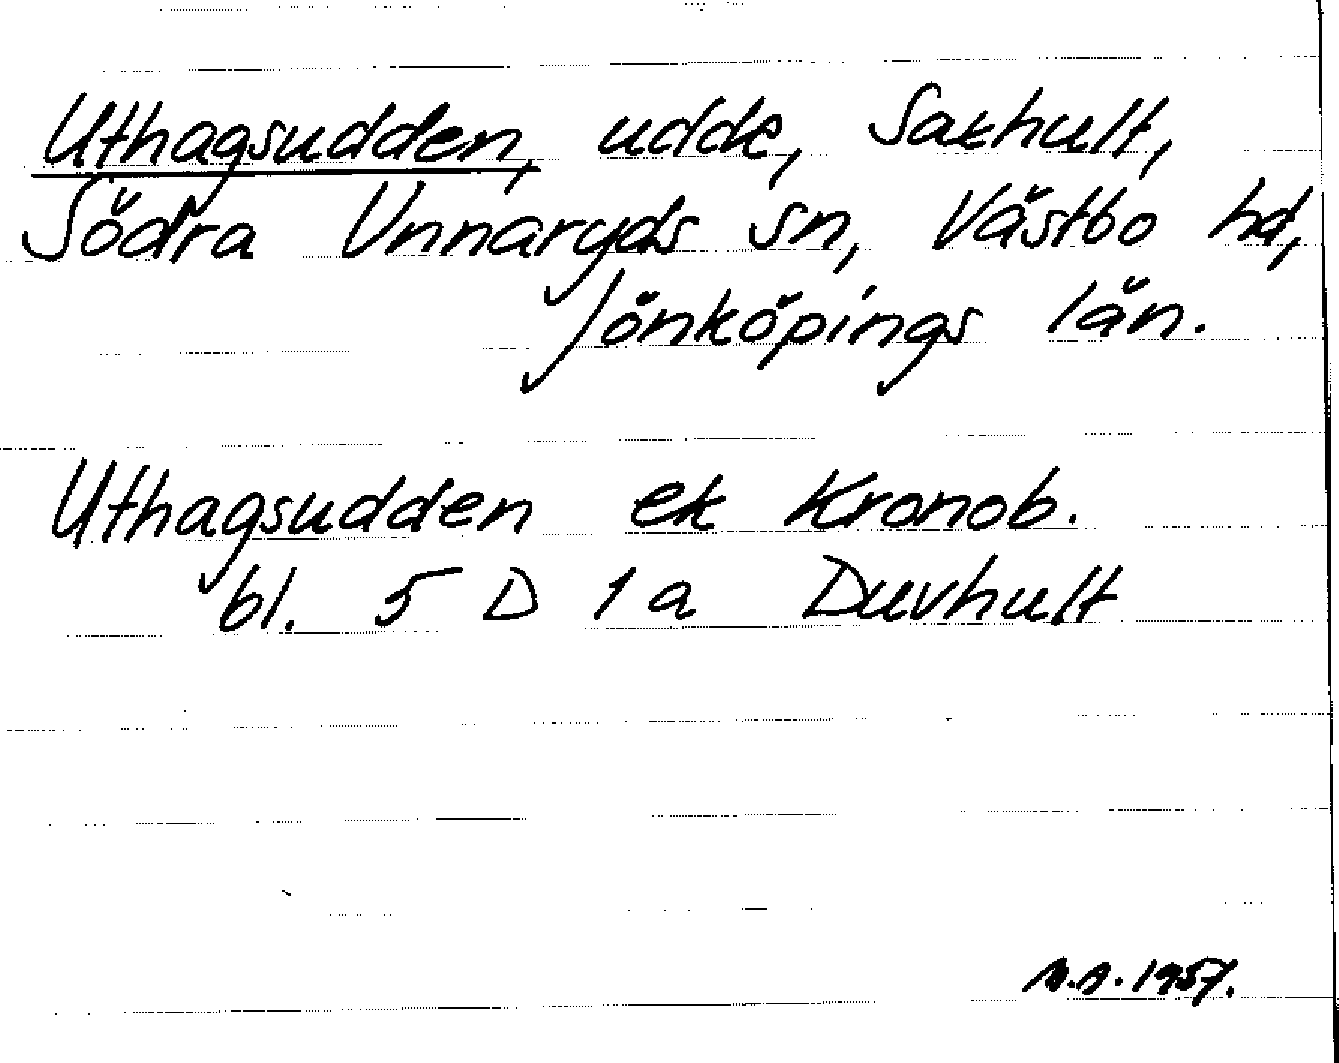 Uthagsudden, udde, Saxhult,
Södra Unnaryds sn, Västbo hd,
Jönköpings län.
Uthagsudden ek Kronob.
bl. 5 D 1a Duvhult
1957.